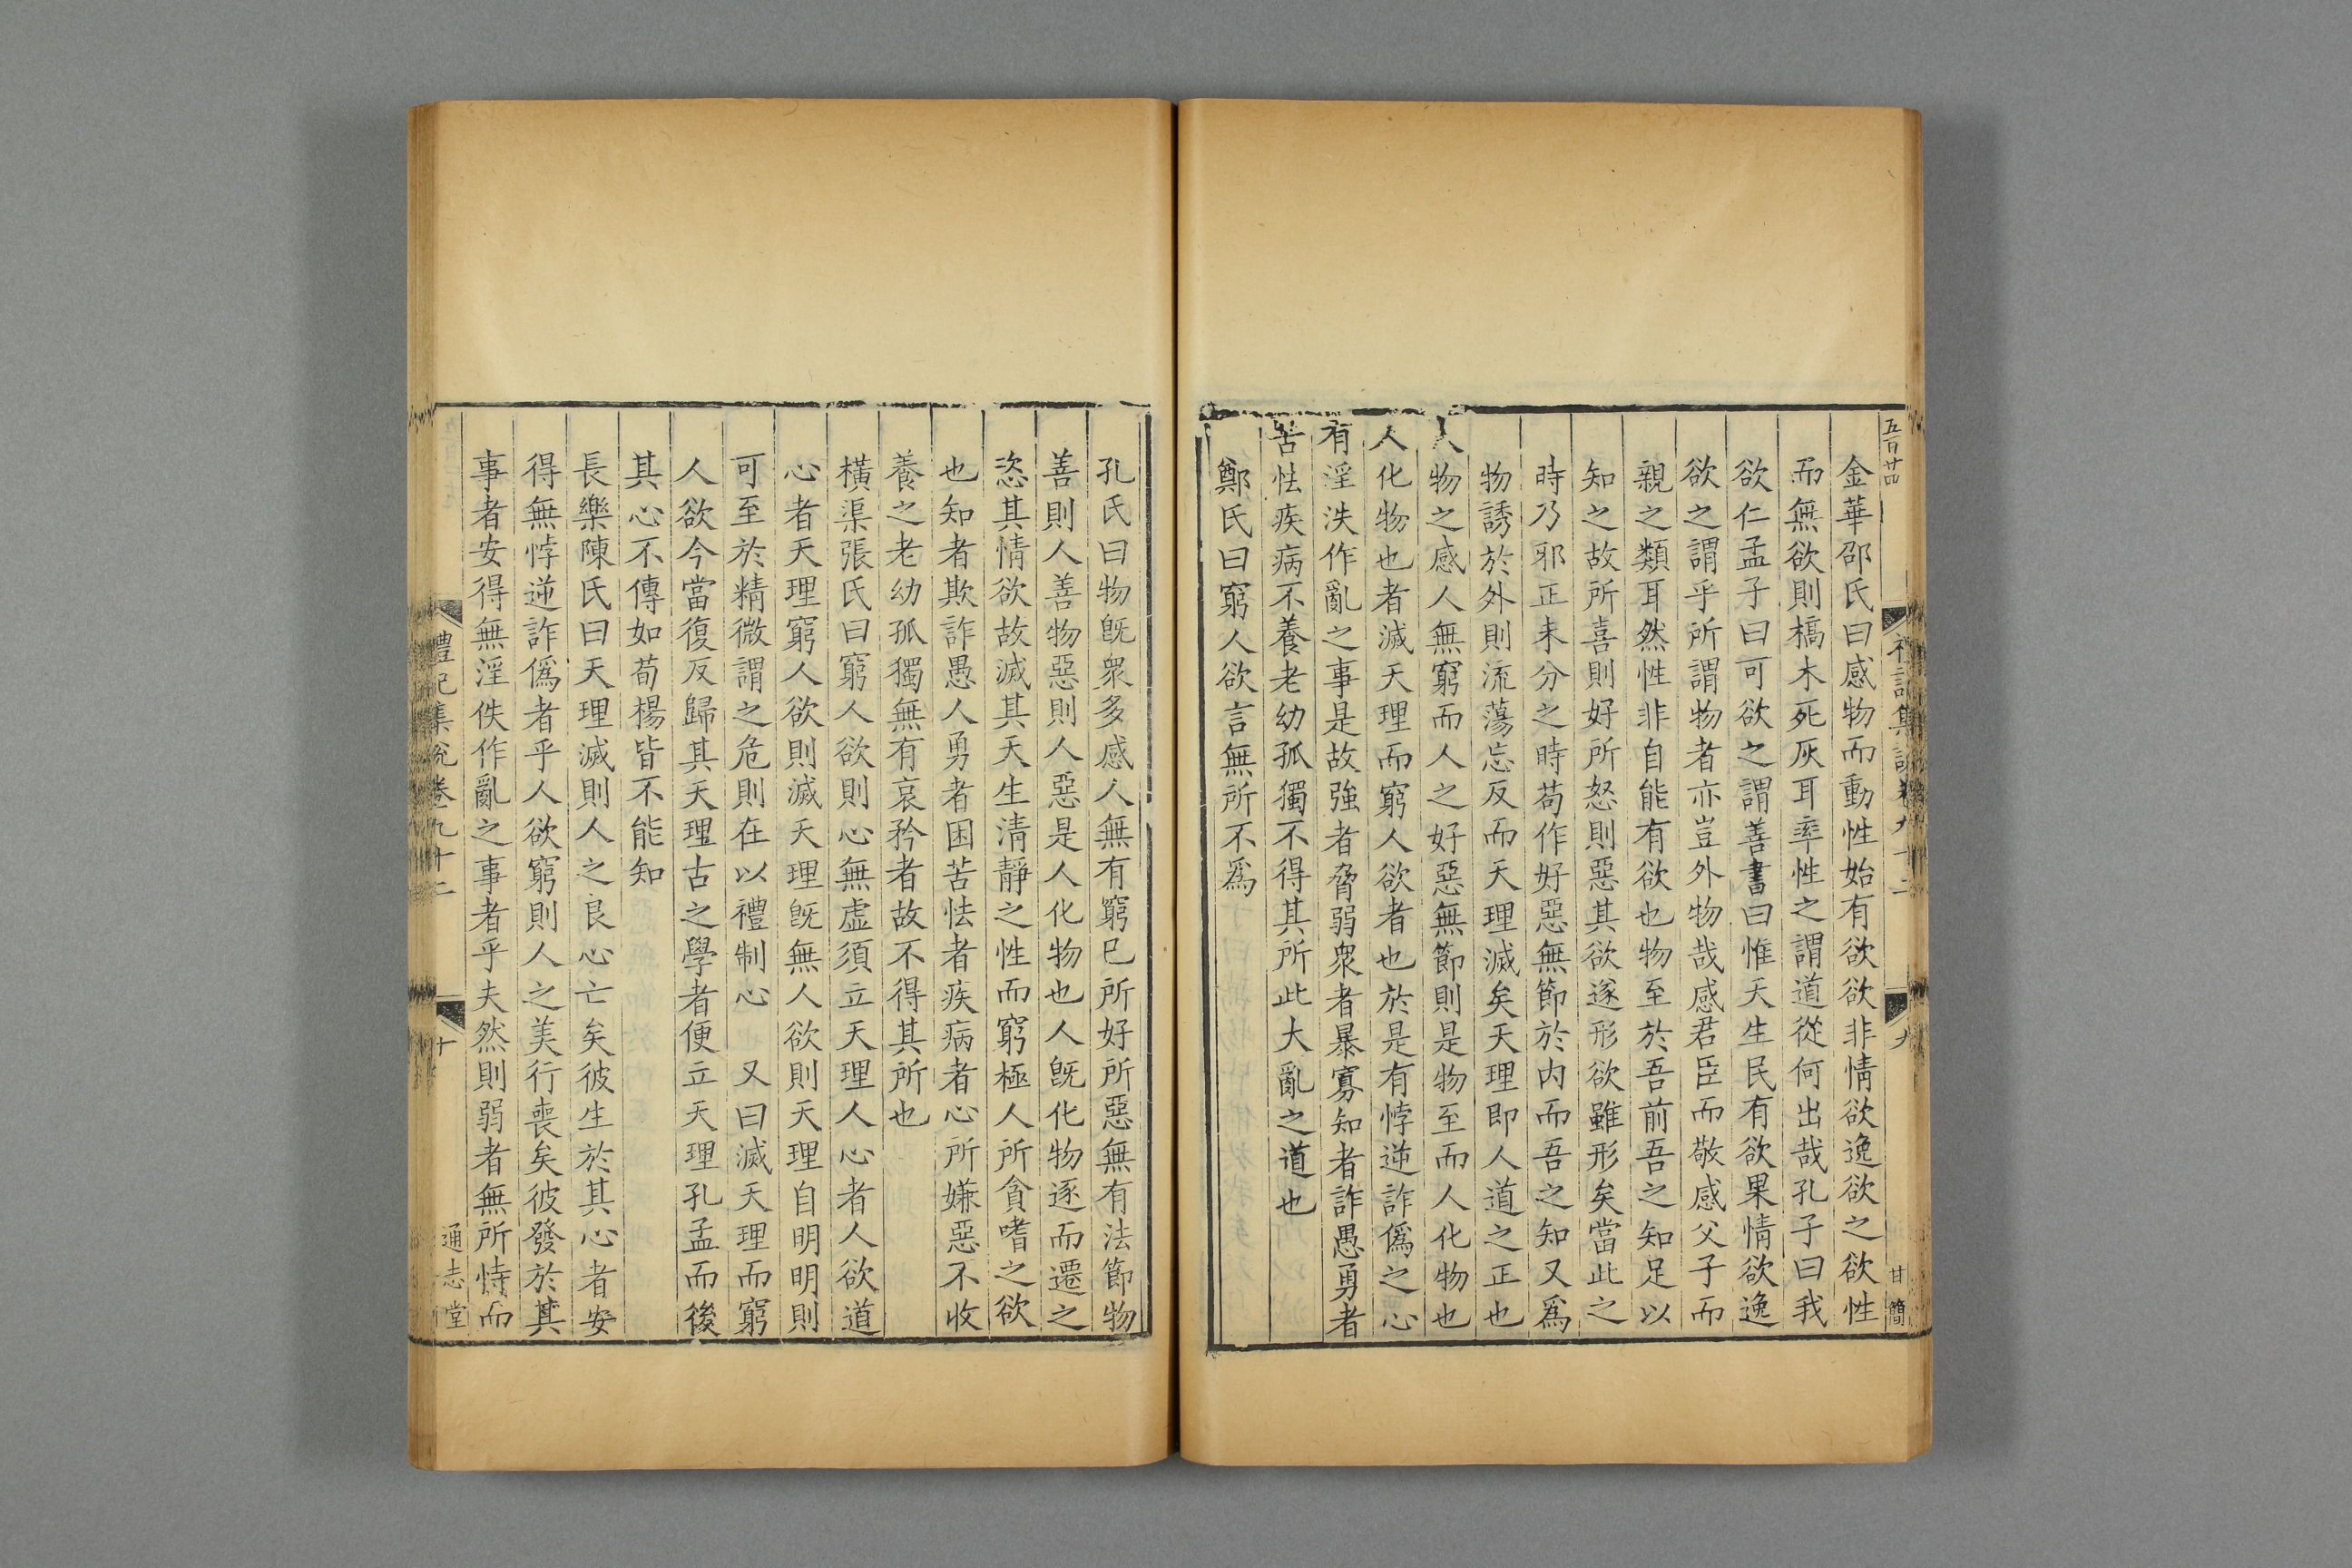 五百廿四
禮記集說卷九十二
九
甘簡
金華邵氏曰感物而動性始有欲欲非情欲逸欲之欲性
而無欲則槁木死灰耳率性之謂道從何出哉孔子曰我
欲仁孟子曰可欲之謂善書曰惟天生民有欲果情欲逸
欲之謂乎所謂物者亦豈外物哉感君臣而敬感父子而
親之類耳然性非自能有欲也物至於吾前吾之知足以
知之故所喜則好所怒則惡其欲遂形欲雖形矣當此之
時乃邪正未分之時苟作好惡無節於內而吾之知又爲
物誘於外則流蕩忘反而天理滅矣天理即人道之正也
人物之感人無窮而人之好惡無節則是物至而人化物也
人化物也者滅天理而窮人欲者也於是有悖逆詐僞之心
有淫泆作亂之事是故強者脅弱衆者暴寡知者詐愚勇者
苦怯疾病不養老幼孤獨不得其所此大亂之道也
鄭氏曰窮人欲言無所不爲
孔氏曰物旣衆多感人無有窮已所好所惡無有法節物
善則人善物惡則人惡是人化物也人旣化物逐而遷之
恣其情欲故滅其天生清靜之性而窮極人所貪嗜之欲
也知者欺詐愚人勇者困苦怯者疾病者心所嫌惡不收
養之老幼孤獨無有哀矜者故不得其所也
橫渠張氏曰窮人欲則心無虛須立天理人心者人欲道
心者天理窮人欲則滅天理旣無人欲則天理自明明則
可至於精微謂之危則在以禮制心　又曰滅天理而窮
人欲今當復反歸其天理古之學者便立天理孔孟而後
其心不傳如荀楊皆不能知
長樂陳氏曰天理滅則人之良心亡矣彼生於其心者安
得無悖逆詐僞者乎人欲窮則人之美行喪矣彼發於其
事者安得無淫佚作亂之事者乎夫然則弱者無所恃而
禮記集說卷九十二
十
通志堂